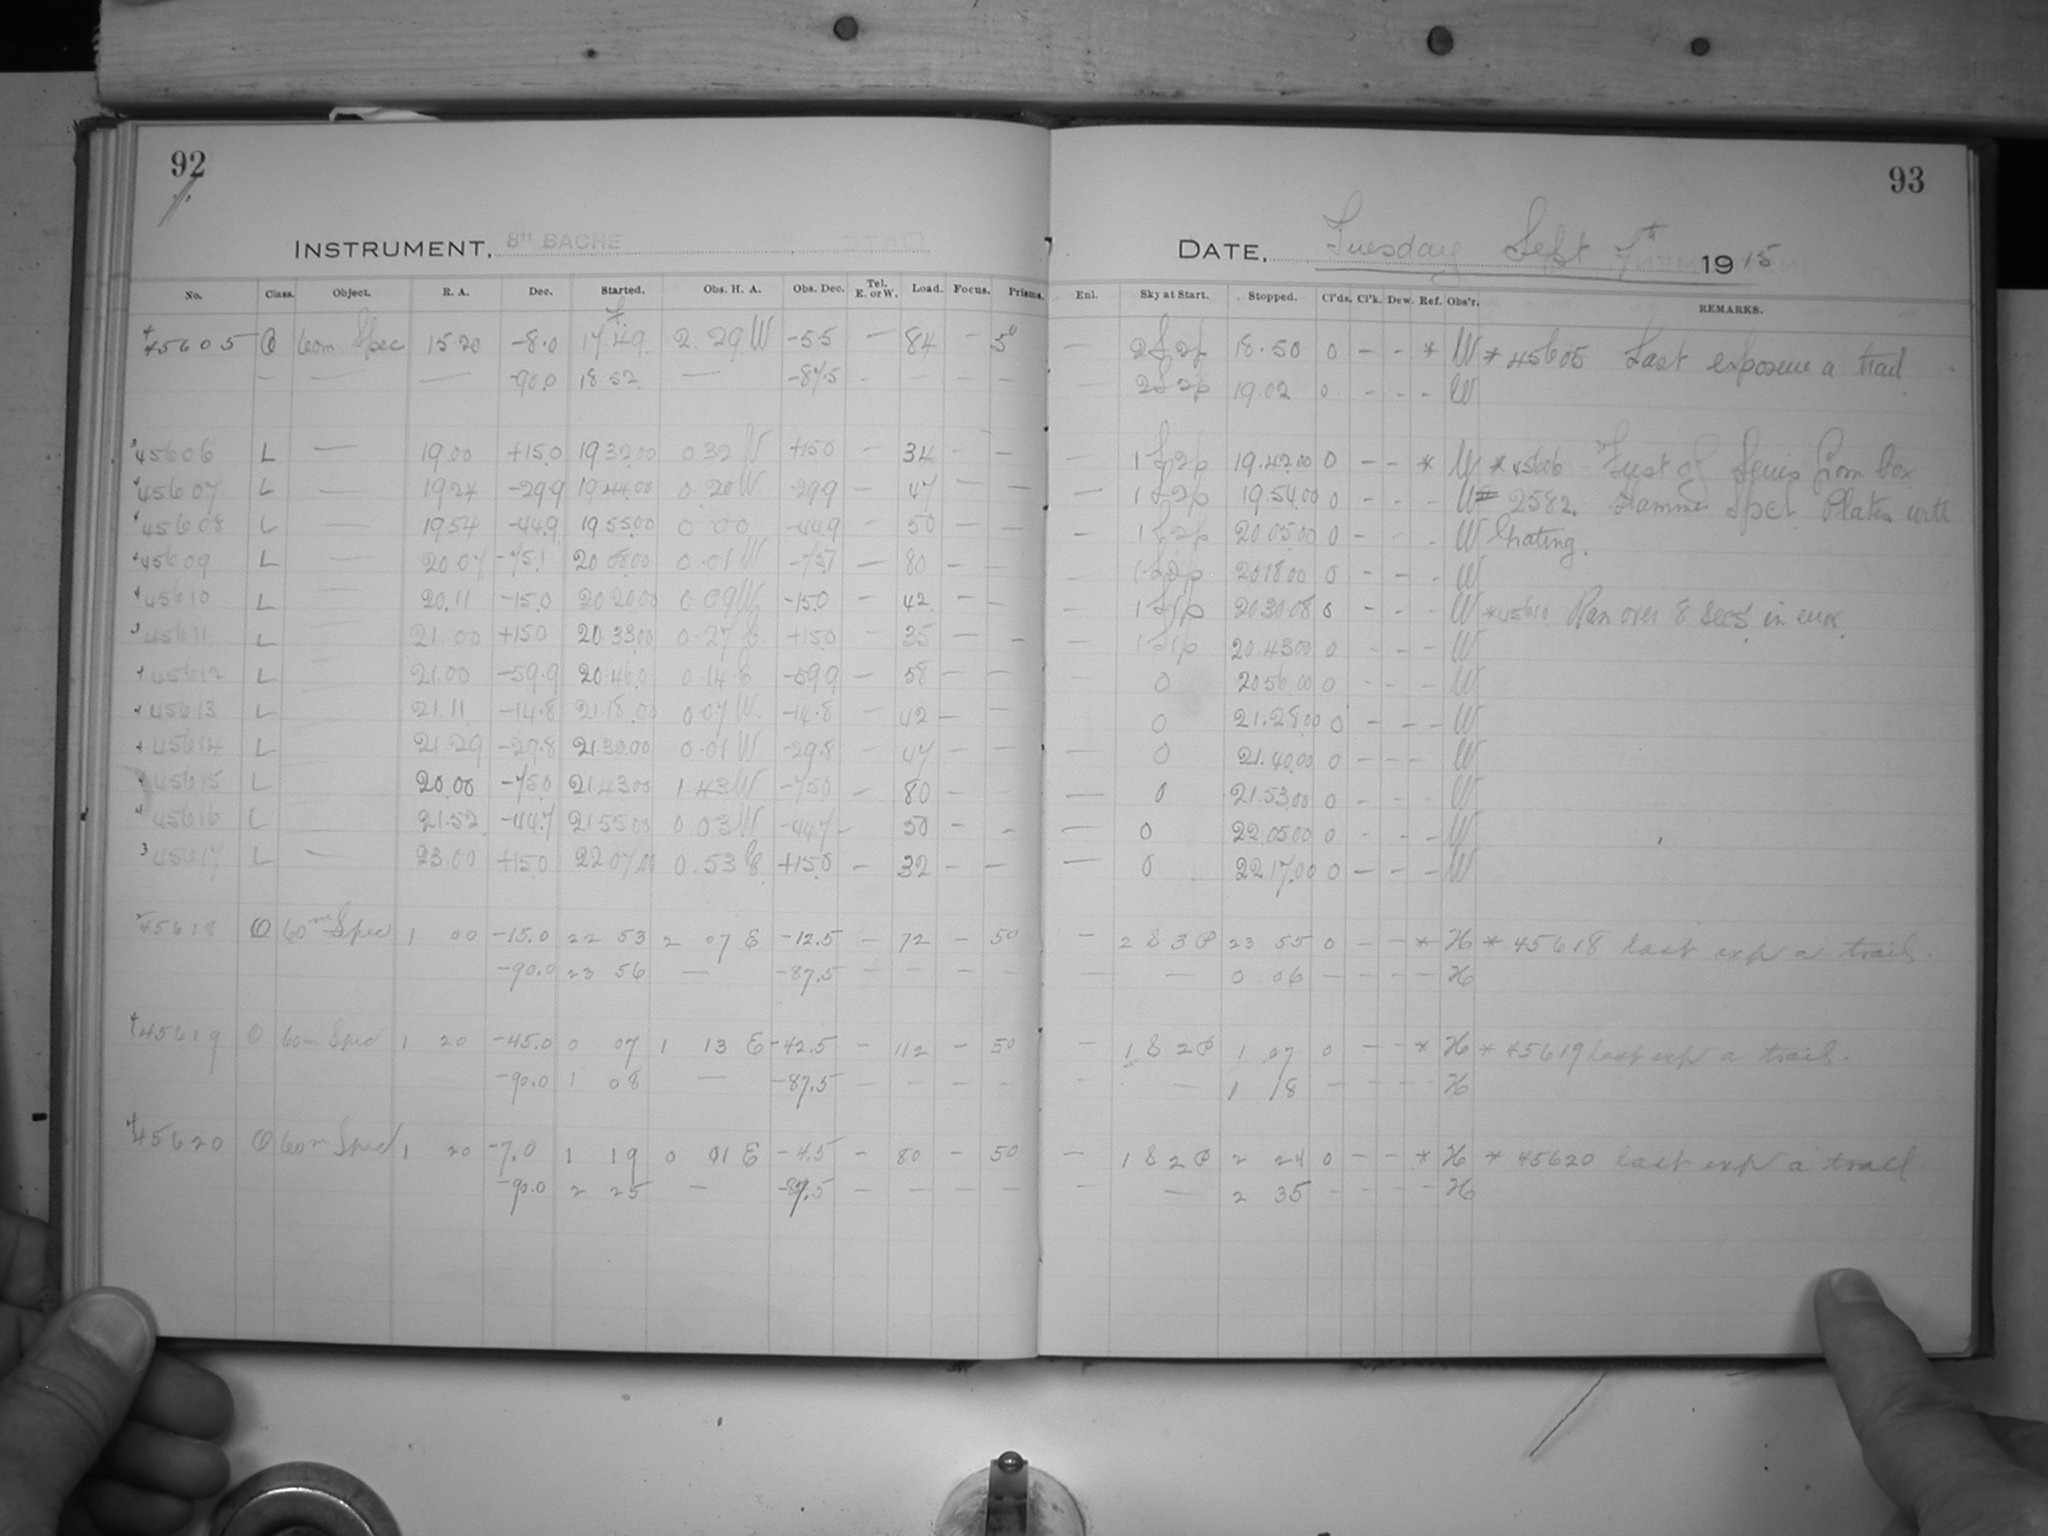 92
INSTRUMENT. 8" BACHE
No. Class. Object. R. A. Dec. Started. Obs. H. A. Obs. Dec. Tel. E. or W. Load. Focus. Prisms.
45605 O 60m Spec 15.20 -8.0 17.49 2.29 W -5.5 — 84 - 50
— — — -90.0 18.52 — -87.5 - — — —
45606 L — 19.00 +15.0 19 32 00 0 32 W +15.0 — 34 - -
45607 L — 19 24 -29.9 19 44 00 0.20 W -29.9 — 47 - —
45608 L — 19 54 -44.9 19 55 00 0 00 -44.9 - 50 - —
45609 L — 20 07 -75.1 20 08 00 0.01 W -75.1 — 80 - -
45610 L — 20.11 -15.0 20 20 00 0 09 W -15.0 — 42 - -
45611 L — 21.00 +15.0 20.33 00 0.27 E +15.0 - 35 - -
45612 L — 21.00 -59.9 20.46.0 0.14 E -59.9 - 58 - —
45613 L — 21.11 -14.8 21.18.00 0.07 W. -14.8 - 42 - -
45614 L — 21.29 -29.8 21.30.00 0.01 W -29.8 - 47 - -
45615 L — 20.00 -75.0 21.43 00 1.43 W -75.0 - 80 - -
45616 L — 21.52 -44.7 21 55 00 0.03 W -44.7 - 50 - -
45617 L — 23.00 +15.0 22 07.00 0.53 E +15.0 — 32 - —
45618 O 60m Spec 1 00 -15.0 22 53 2 07 E -12.5 - 72 - 50
-90.0 23 56 — -87.5 - — - —
45619 O 60m Spec 1 20 -45.0 0 07 1 13 E -42.5 - 112 - 50
-90.0 1 08 — -87.5 - - - -
45620 O 60m Spec 1 20 -7.0 1 19 0 01 E -4.5 - 80 - 50
-90.0 2 25 — -87.5 - - - -
93
DATE. Tuesday Sept 7th 1915
Enl. Sky at Start. Stopped. Cl'ds. Cl'k. Dew. Ref. Obs'r. REMARKS.
— 2 f 2p 18.50 0 - - * W * 45605 Last exposure a trail
— 2 f 2p 19.02 0 - - - W
— 1 f 2p 19.42.00 0 - - * W * 45606 First of Series from box
— 1 f 2p 19.54.00 0 - - - W # 2582. Spect Plates with
— 1 f 2p 20 05.00 0 - - - W
— 1 f 2p 20 18 00 0 - - - W
— 1 f 1p 20 30 08 0 - - - W * 45610 Ran over 8 secs. in error
— 1 f 1p 20.43 00 0 - - - W
0 20 56.00 0 - - - W
0 21.28 00 0 - - - W
— 0 21.40.00 0 - - - W
— 0 21.53.00 0 - - - W
— 0 22.05 00 0 - - - W
— 0 22.17.00 0 - - - W
— 2 & 3 P 23 55 0 - - * H * 45618 last exp a trail.
— — 0 06 - - - - H
— 1 & 2 P 1 07 0 - - * H * 45619 last exp a trail.
— — 1 18 - - - - H
— 1 & 2 P 2 24 0 - - * H * 45620 last exp a trail
— — 2 35 - - - - H